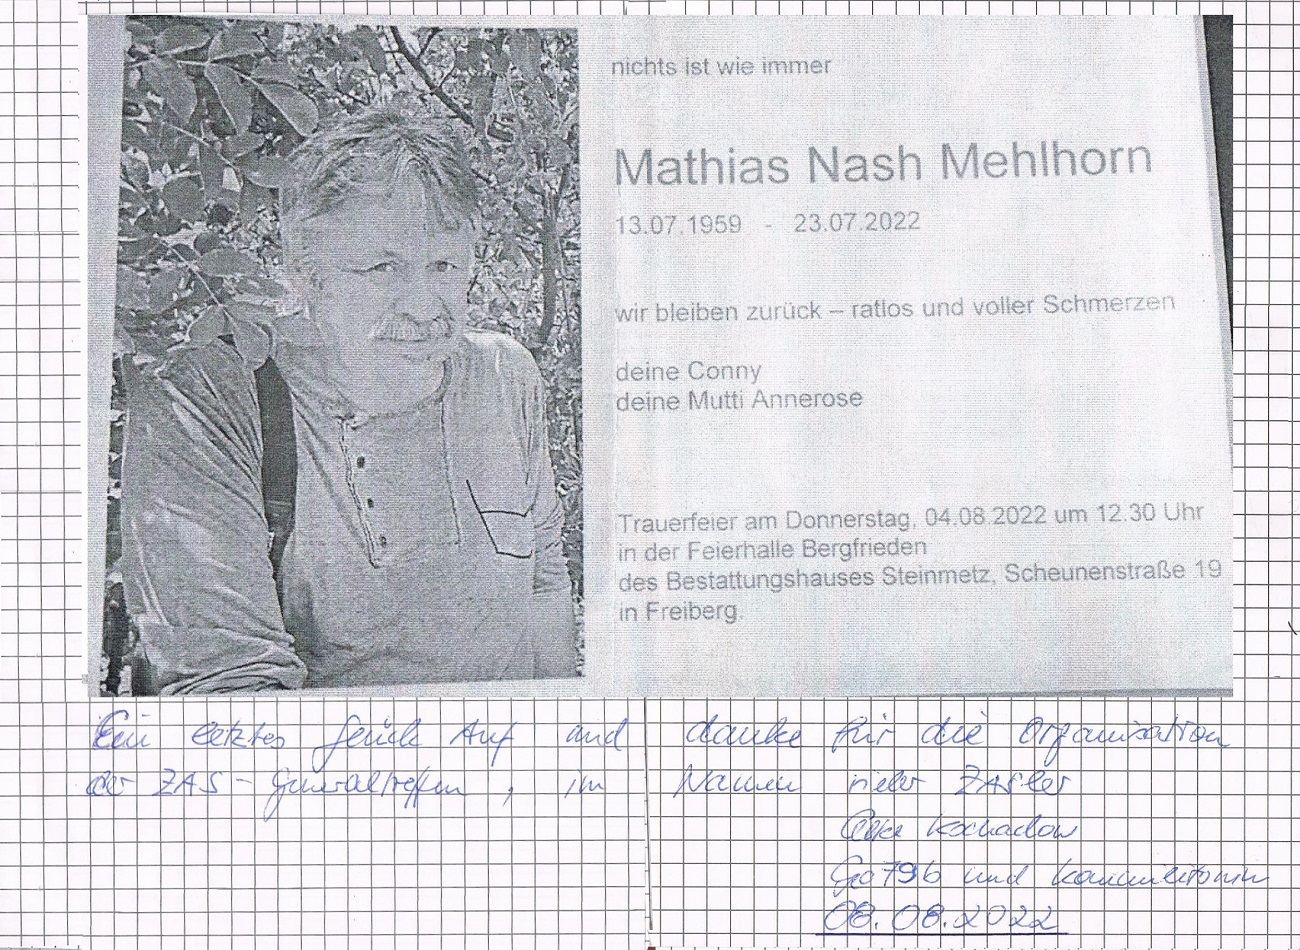 nichts ist wie immer
Mathias Nash Mehlhorn
13.07.1959 - 23.07.2022
wir bleiben zurück – ratlos und voller Schmerzen
deine Conny
deine Mutti Annerose
Trauerfeier am Donnerstag, 04.08.2022 um 12.30 Uhr
in der Feierhalle Bergfrieden
des Bestattungshauses Steinmetz, Scheunenstraße 19
in Freiberg.
Ein letztes Glück Auf und danke für die Organisation
der ZAS-Generaltreffen, im Namen vieler ZASler
Kochadow
und
08.08.2022